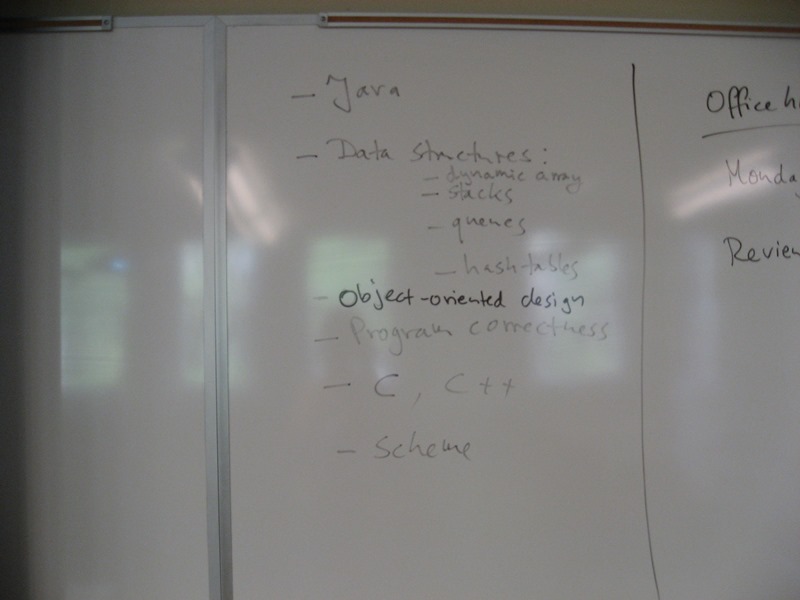 - Java
- Data structures:
- dynamic array
- stacks
- queues
- hash-tables
- Object-oriented design
- Program correctness
- C, C++
- Scheme
Office h
Monda
Review